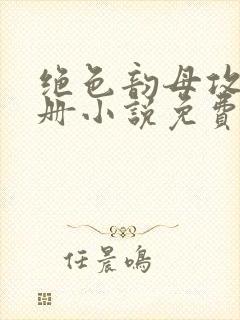 绝色韵母攻
册小说免费
任晨鸣